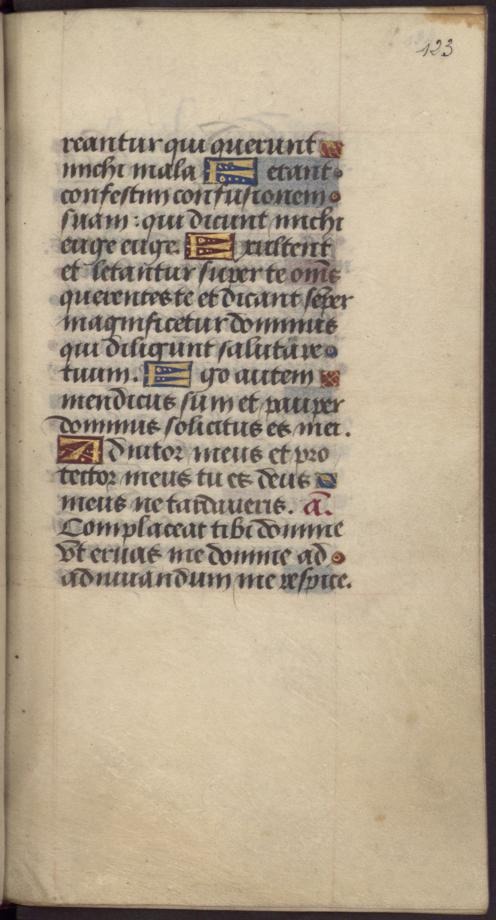 123
reantur qui querunt
michi mala F erant
confestim confusionem
suam : qui dicunt michi
euge euge. E xultent
et letantur super te oms
querentes te et dicant sēper
magnificetur dominus
qui diligunt salutare
tuum. E go autem
mendicus sum et pauper
dominus solicitus es mei.
A diutor meus et pro
tector meus tu es deus
meus ne tardaueris. a.
Complaceat tibi domine
vt eruas me domine ad
adiuuandum me respice.